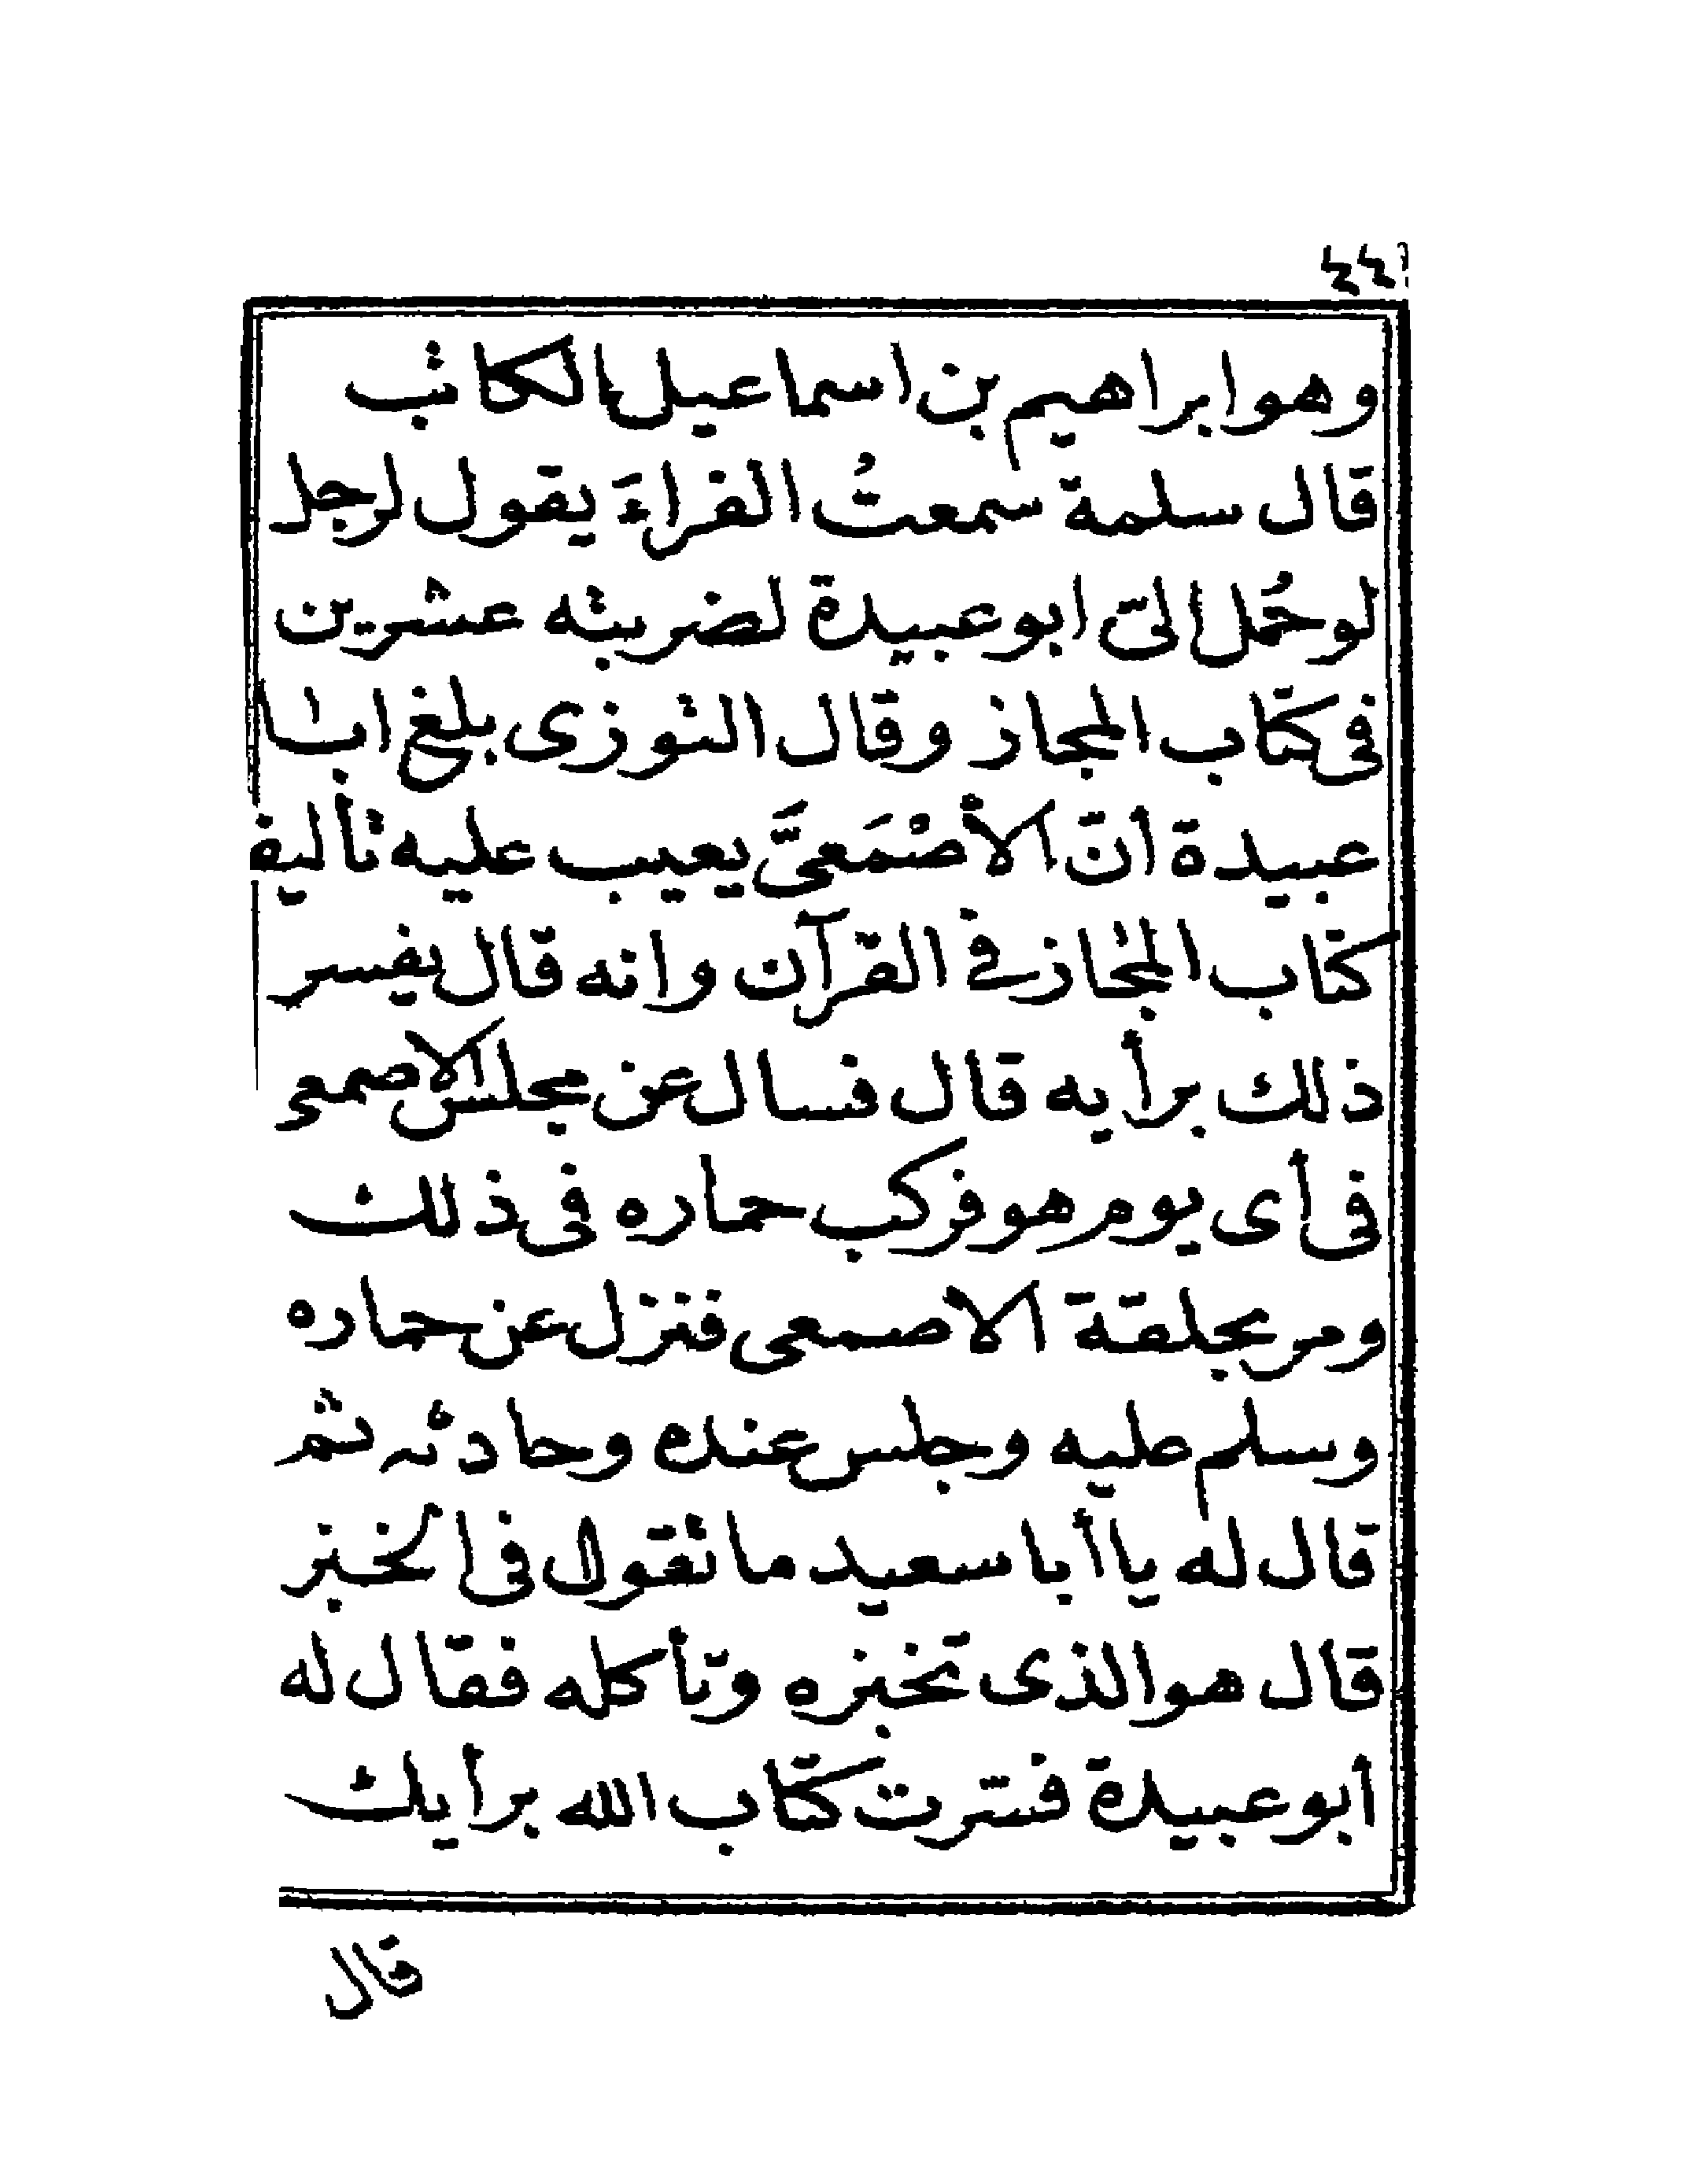 ٤٤
وهو ابراهيم بن اسماعيل الكاتب
قال سلمة سمعتُ الفراءَ يقول لرجل
لو حُمل الىّ ابو عبيدة لضربته عشرين
فى كتاب المجاز وقال التوزى بلغ ابا
عبيدة أنّ الأصْمَعىَّ يعيب عليه تأليف
كتاب المجاز في القرآن وانه قال يفسر
ذلك برأيه قال فسال عن مجلس الاصمعي
فى أى يوم هو فركب حماره فى ذلك
ومر بحلقة الاصمعى فنزل عن حماره
وسلم عليه وجلس عنده وحادثه ثم
قال له يا أبا سعيد ما تقول فى الخبز
قال هو الذى تخبزه وتأكله فقال له
أبو عبيدة فسّرت كتاب الله برأيك
قال